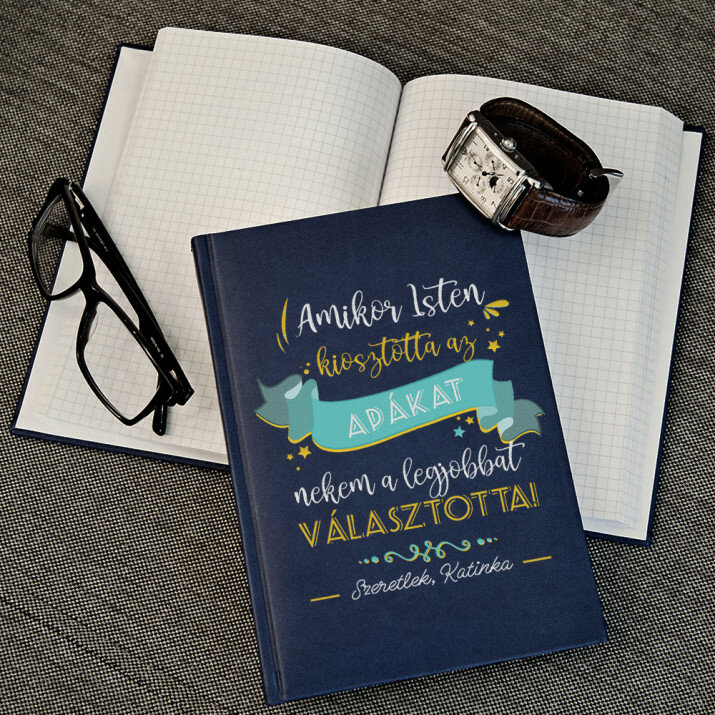 Amikor Isten
kiosztotta az
APÁKAT
nekem a legjobbat
VÁLASZTOTTA!
Szeretlek, Katinka